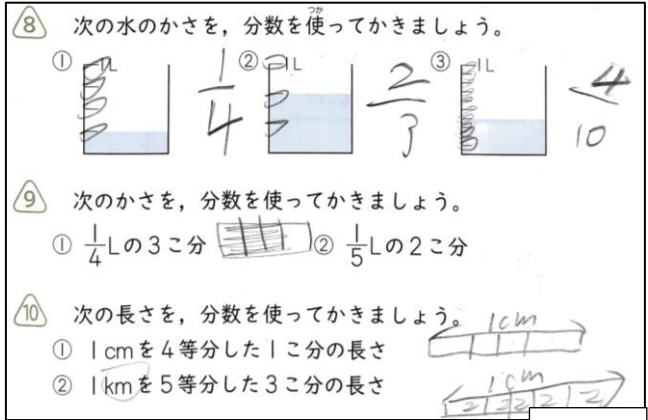 8 次の水のかさを，分数を使ってかきましょう。
① 1L 1/4 ② 1L 2/3 ③ 1L 4/10
9 次のかさを，分数を使ってかきましょう。
① 1/4Lの3こ分 ② 1/5Lの2こ分
10 次の長さを，分数を使ってかきましょう。
1cm
① 1cmを4等分した1こ分の長さ
1cm
② 1kmを5等分した3こ分の長さ